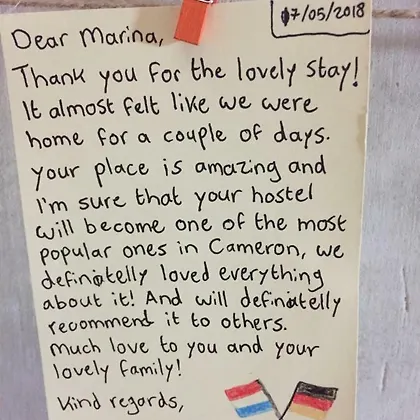 07/05/2018
Dear Marina,
Thank you for the lovely stay!
It almost felt like we were
home for a couple of days.
your place is amazing and
I'm sure that your hostel
will become one of the most
popular ones in Cameron, we
definitelly loved everything
about it! And will definitelly
recomment it to others.
Much love to you and your
lovely family!
Kind regards,